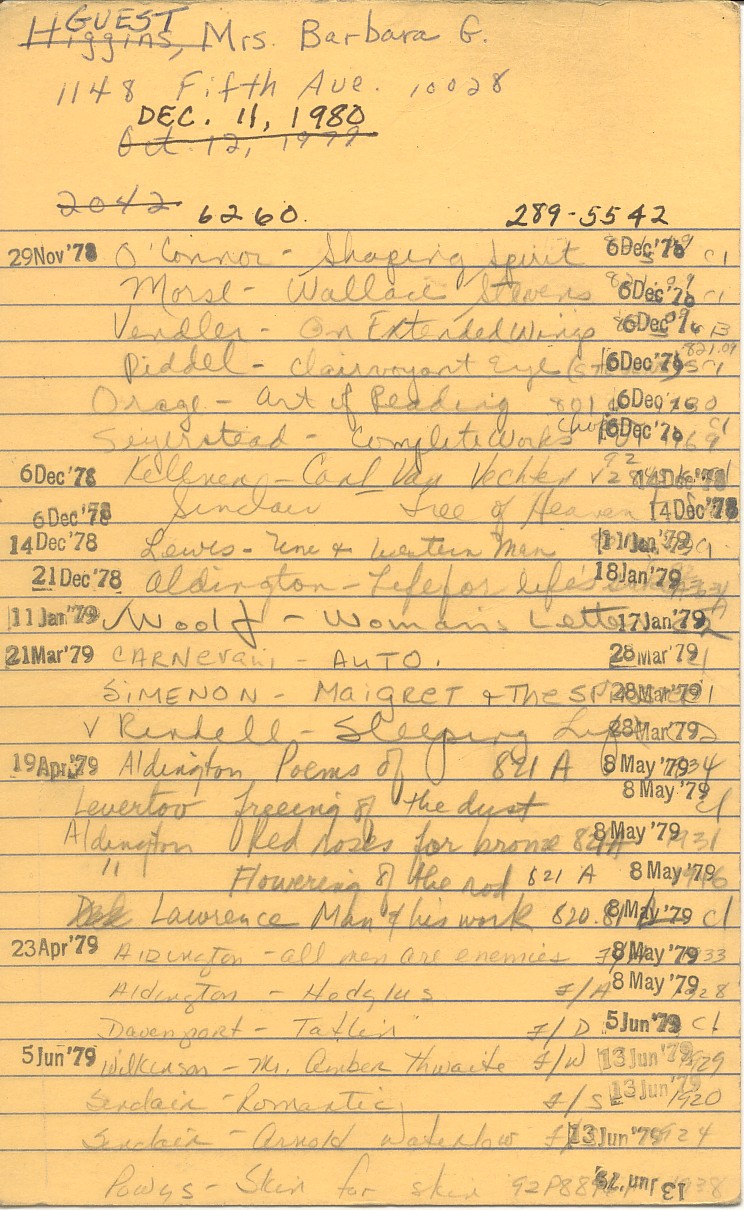 GUEST
Higgins, Mrs. Barbara G.
1148 Fifth Ave. 10028
DEC. 11, 1980
Oct. 12, 1979
2042 6260. 289-5542
29Nov'78 O'Connor - Shaping Spirit 6Dec'78 c1
Morse - Wallace Stevens 6Dec'78 c1
Vendler - On Extended Wings 6Dec'78 B
Riddel - Clairvoyant Eye 6Dec'78 821.09 c1
Orage - Art of Reading 801 6Dec'78
Seyerstead - Complete Works Chop 6Dec'78 c1 1969
6Dec'78 Kellner - Carl Van Vechten 92 14Dec'78
6Dec'78 Sinclair - Tree of Heaven 14Dec'78
14Dec'78 Lewis - Time & Western Man 11Jan'79
21Dec'78 Aldington - Life for life's 18Jan'79
11Jan'79 Woolf - Woman's Letter 17Jan'79
21Mar'79 CARNevali - AUTO. 28Mar'79 c1
SIMENON - MAIGRET & THE 28Mar'79 c1
V Rendell - Sleeping 28Mar'79
19Apr'79 Aldington Poems of 821 A 8May'79 1934
Levertov Freeing of the dust 8May'79 c1
Aldington Red roses for bronze 821 A 8May'79 1931
" Flowering of the rod 821 A 8May'79 1946
Lawrence Man & his work 820.81 8May'79 c1
23Apr'79 Aldington - all men are enemies F/A 8May'79 1933
Aldington - Hodglus F/A 8May'79 1928
Davenport - Tatlin F/D 5Jun'79 c1
5Jun'79 Wilkinson - Mr. Amber thwaite F/W 13Jun'79 1929
Sinclair - Romantic F/S 13Jun'79 1920
Sinclair - Arnold Waterlow 13Jun'79 1924
Powys - Skin for skin 92P88 13Jun'79 1938